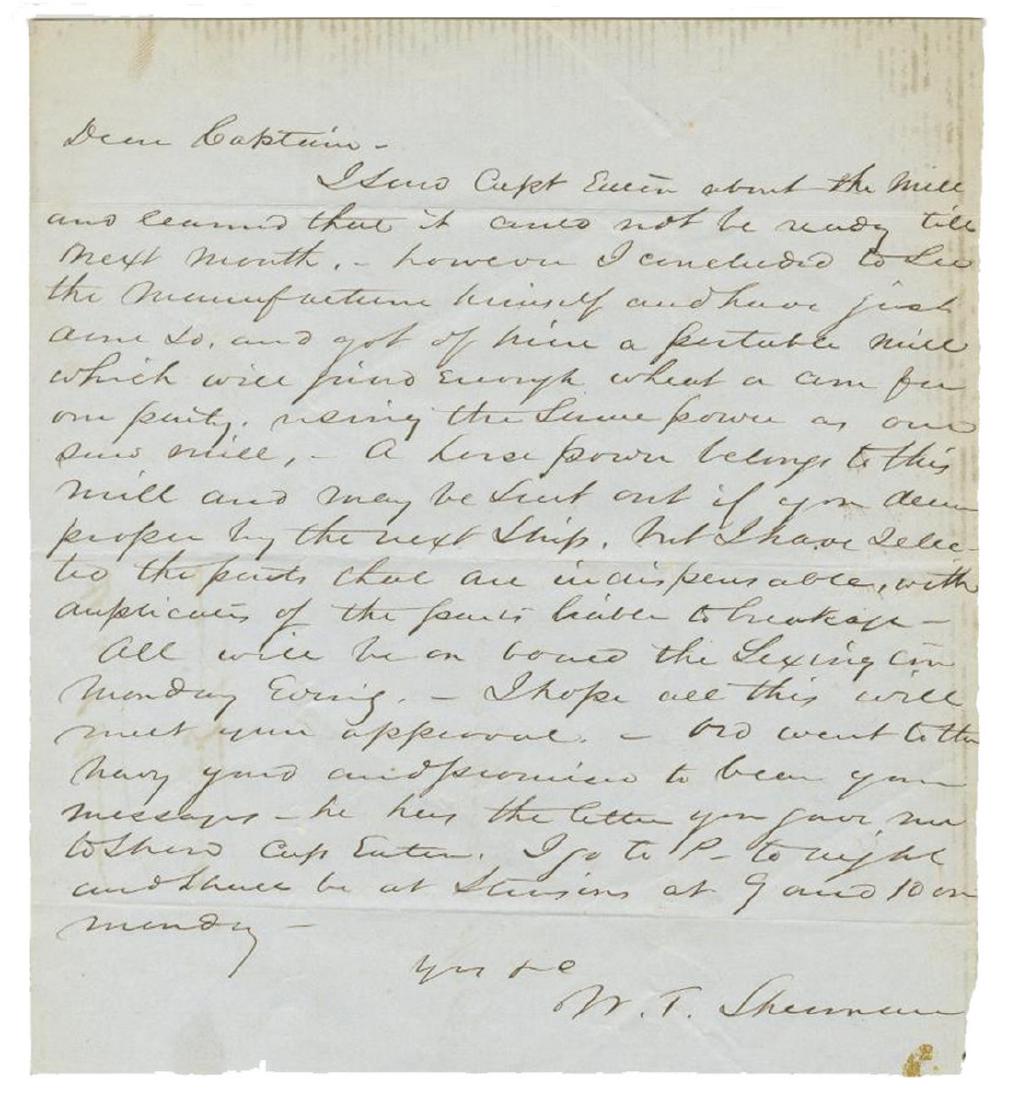 Dear Captain -
I saw Capt Eaton about the Mill
and learned that it could not be ready till
next month. - however I concluded to see
the manufacturer himself and have just
done so, and got of him a portable mill
which will grind enough wheat or corn for
our party, using the same power as our
saw mill, - A horse power belongs to this
mill and may be sent out if you deem
proper by the next Ship, but I have selec-
ted the parts that are indispensable, with
duplicates of the parts liable to breakage -
All will be on board the Lexington
Monday Eving. - I hope all this will
meet your approval. - Ord went to the
navy yard and promised to bear your
messages - he has the letter you gave me
to show Capt Eaton. I go to P- to night
and shall be at at 9 and 10 on
monday -
Yrs &c
W. T. Sherman